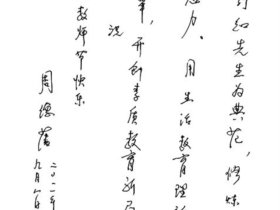 知先生为典范，修炼
力。用生活教育理
革，开创素质教育新局
祝
教师节快乐
周德藩
二〇一一年
九月八日